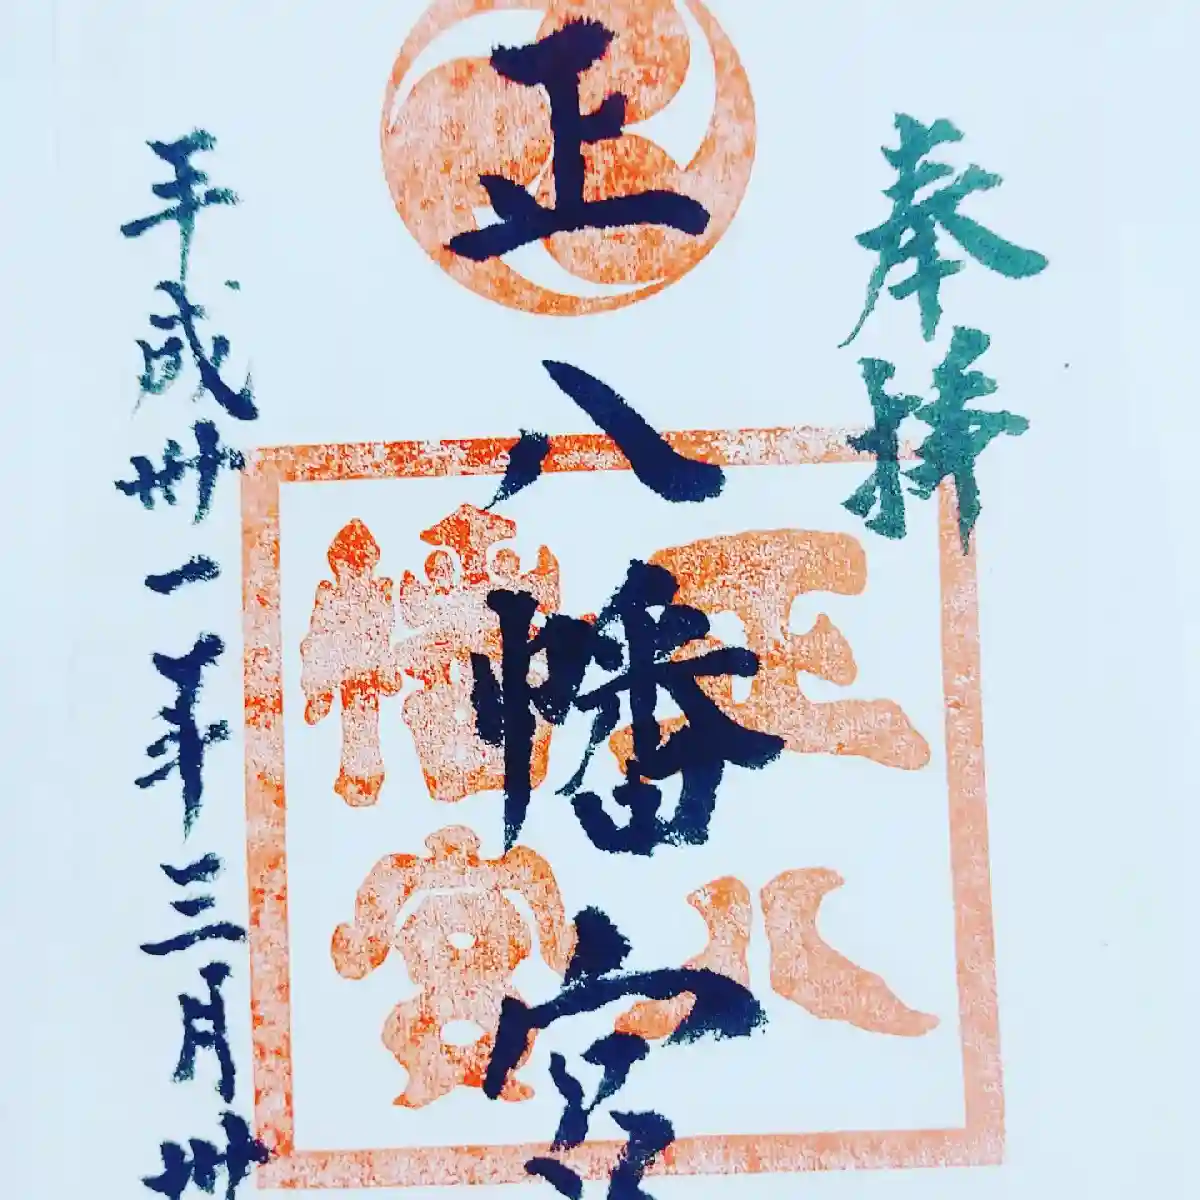 奉拝
正八幡宮
正八
幡宮
平成卅一年三月卅